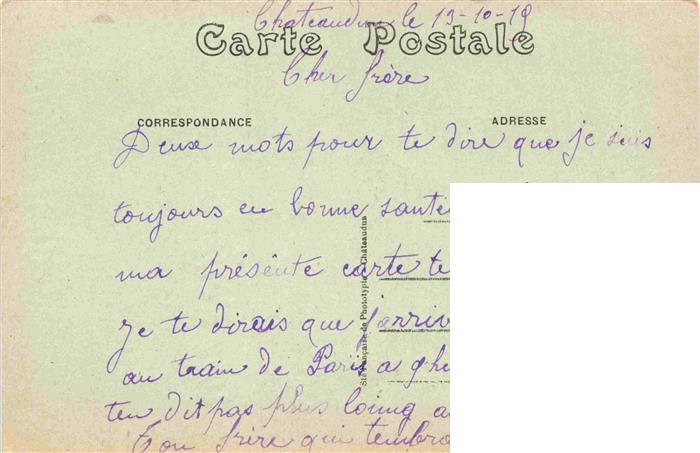 Chateaudun le 13-10-19
Carte Postale
Cher frère
CORRESPONDANCE
ADRESSE
Deux mots pour te dire que je suis
toujours en bonne santé
ma présente carte te
Je te dirais que j'arriv
au train de Paris a 9h
ten dit pas plus loing a
Ton frère qui tembra
Sté Française de Phototypie - Châteaudun